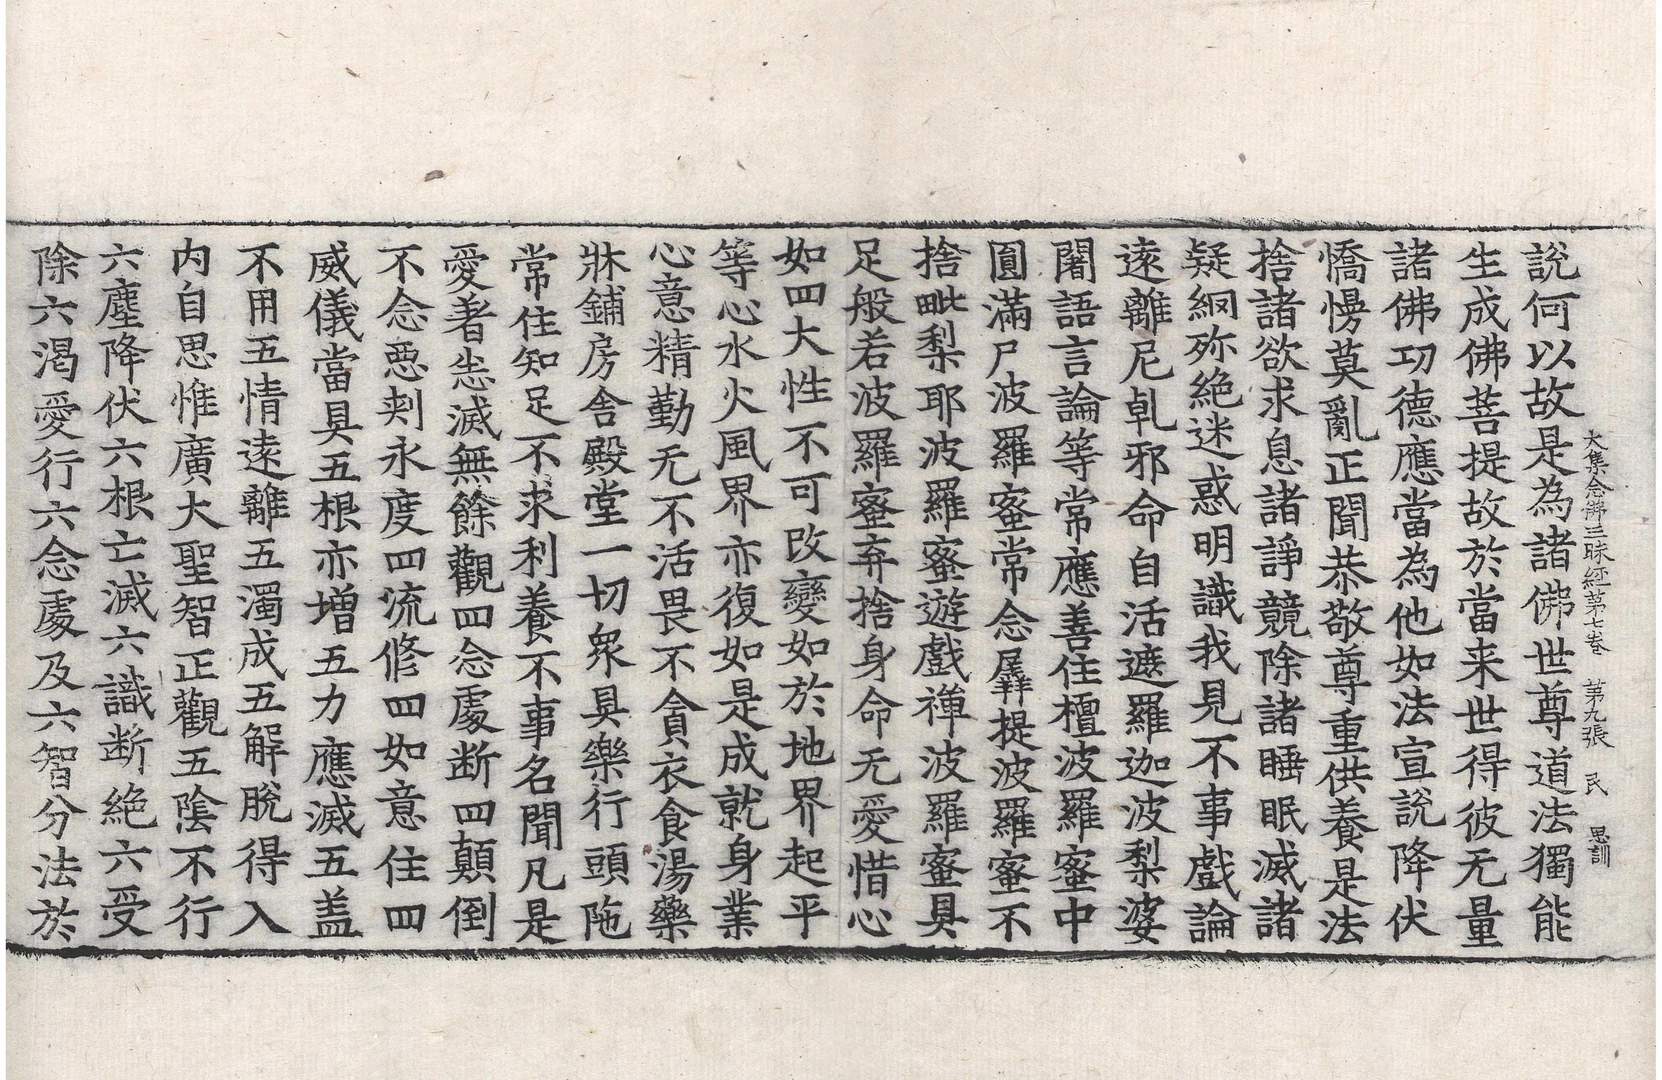 大集念佛三昧經第七卷 第九張 民 思訓
說何以故是為諸佛世尊道法獨能
生成佛菩提故於當来世得彼无量
諸佛功德應當為他如法宣說降伏
憍慢莫亂正聞恭敬尊重供養是法
捨諸欲求息諸諍競除諸睡眠滅諸
疑網殄絶迷惑明識我見不事戲論
遠離尼乹邪命自活遮羅迦波梨婆
闍語言論等常應善住檀波羅蜜中
圓滿尸波羅蜜常念羼提波羅蜜不
捨毗梨耶波羅蜜遊戲禪波羅蜜具
足般若波羅蜜弃捨身命无愛惜心
如四大性不可改變如於地界起平
等心水火風界亦復如是成就身業
心意精勤无不活畏不貪衣食湯藥
牀鋪房舍殿堂一切衆具樂行頭陁
常住知足不求利養不事名聞凡是
愛著恚滅無餘觀四念處断四顛倒
不念惡刾永度四流修四如意住四
威儀當具五根亦增五力應滅五盖
不用五情遠離五濁成五解脫得入
内自思惟廣大聖智正觀五陰不行
六塵降伏六根亡滅六識断絶六受
除六渴愛行六念處及六智分法於